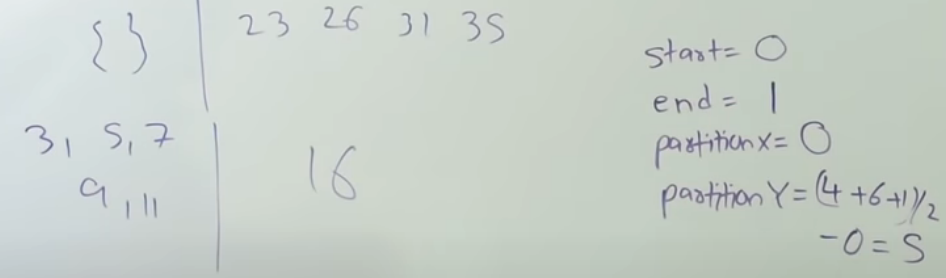 { } | 23 26 31 35
3, 5, 7 | 16
9, 11
start = 0
end = 1
partitionx = 0
partitionY = (4+6+1)/2
-0 = 5